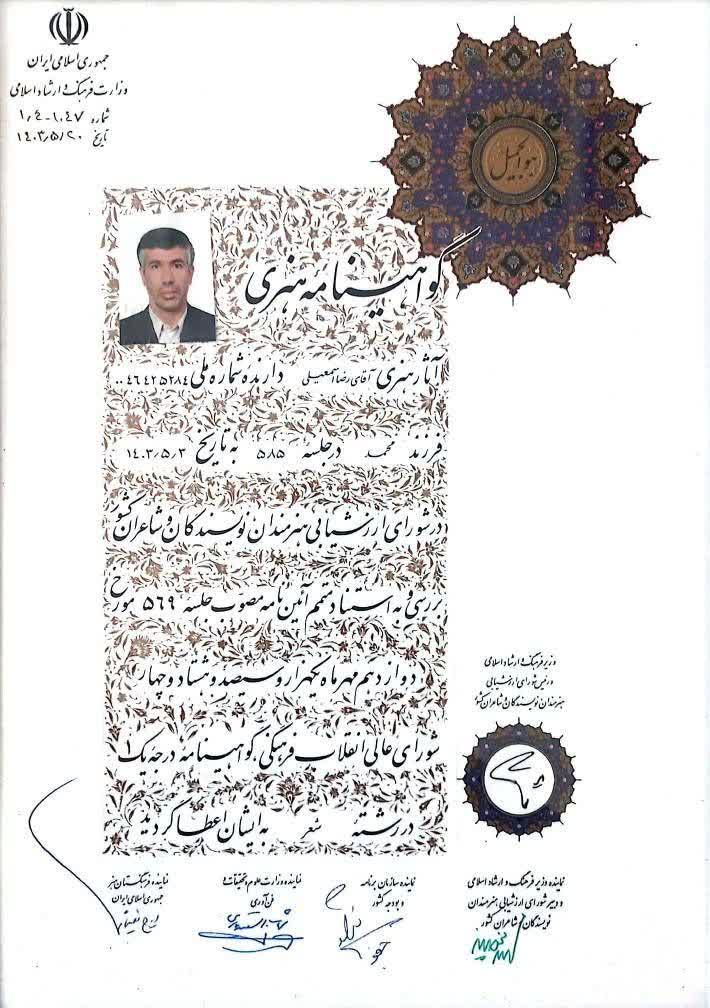 جمهوری اسلامی ایران
وزارت فرهنگ و ارشاد اسلامی
شماره ۱۰۴-۱۰۴۷
تاریخ ۱۴۰۳/۵/۲۰
هو الجمیل
گواهینامه هنری
آثار هنری آقای رضا اسمعیلی دارنده شماره ملی ۰۰۴۶۴۲۵۲۸۴
فرزند محمد در جلسه ۵۸۵ به تاریخ ۱۴۰۳/۵/۳
در شورای ارزشیابی هنرمندان نویسندگان و شاعران کشور
بررسی و به استناد متمم آئین نامه مصوب جلسه ۵۶۹ مورخ
دوازدهم مهرماه یکهزار و سیصد و هشتاد و چهار
شورای عالی انقلاب فرهنگی گواهینامه درجه یک ۱
در رشته شعر به ایشان اعطا گردید
وزیر فرهنگ و ارشاد اسلامی
و رئیس شورای ارزشیابی
هنرمندان نویسندگان و شاعران کشور
نماینده وزیر فرهنگ و ارشاد اسلامی
و دبیر شورای ارزشیابی هنرمندان
نویسندگان و شاعران کشور
نماینده سازمان برنامه
و بودجه کشور
نماینده وزارت علوم و تحقیقات و
فن آوری
نماینده فرهنگستان هنر
جمهوری اسلامی ایران